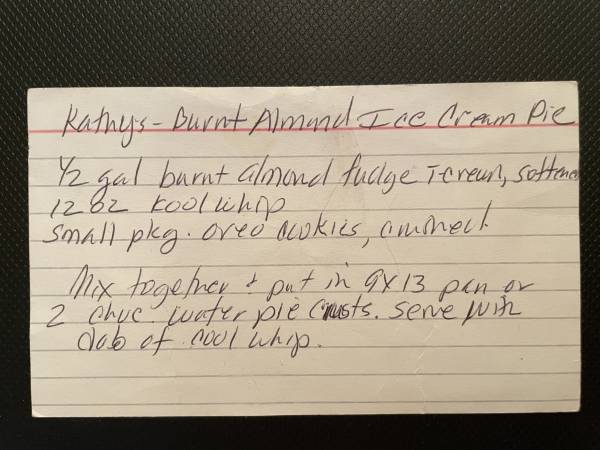 Kathys - Burnt Almond Ice Cream Pie
1/2 gal burnt almond fudge icream, softened
12 oz Kool whip
small pkg. oreo cookies, crushed
Mix together + put in 9x13 pan or
2 choc. wafer pie crusts. Serve with
dab of cool whip.